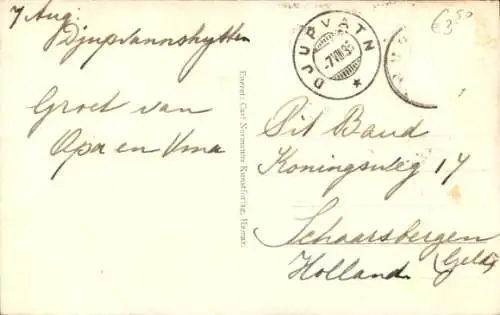 7 Aug.
Djupvasshytten
Groet van
Opa en Oma
Eneret: Carl Normanns Kunstforlag, Hamar.
DJUPVATN
-7 VIII 3
€3 50
Pit Baud
Koningsweg 17
Schaarsbergen
(Geld)
Holland